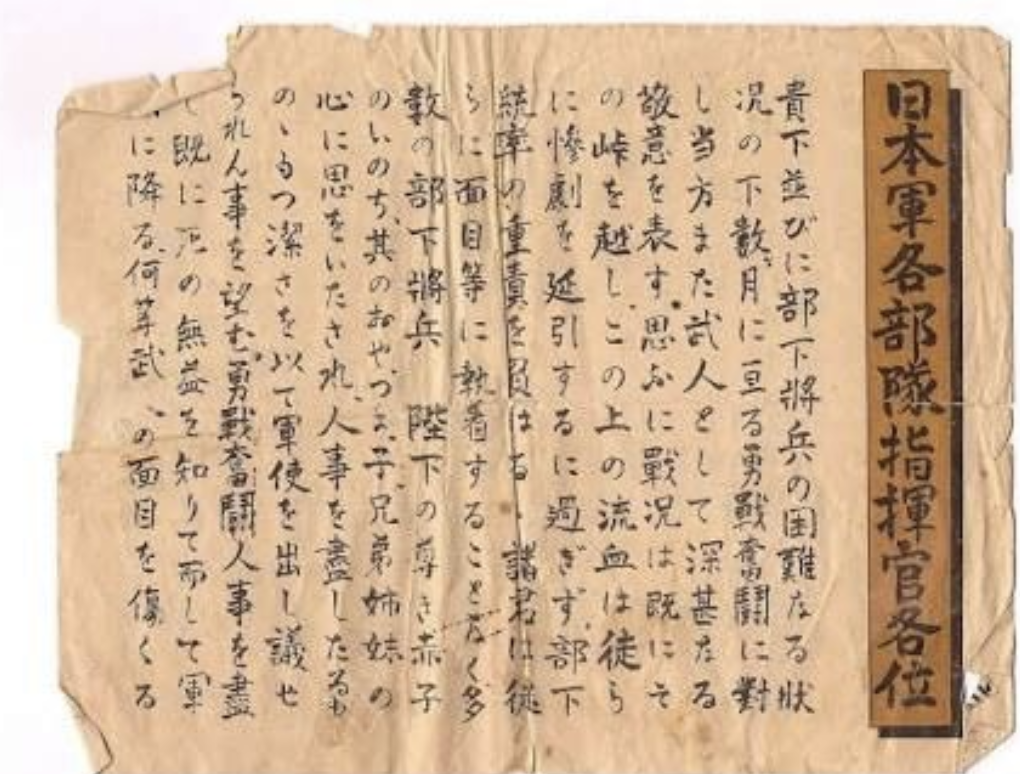 日本軍各部隊指揮官各位
貴下並びに部下將兵の困難なる狀
況の下數ヶ月に亘る勇戰奮鬪に對
し当方また武人として深甚なる
敬意を表す。思ふに戰況は既にそ
の峠を越し、この上の流血は徒ら
に慘劇を延引するに過ぎず、部下
統率の重責を負はる、諸君に従
らに面目等に執着することなく多
數の部下將兵 陛下の尊き赤子
のいのち、其のおや、つま、子、兄弟姉妹の
心に思をいたされ、人事を盡したるも
のゝもつ潔さを以て軍使を出し議せ
られん事を望む。勇戰奮鬪人事を盡
既に の無益を知りて而して軍
に降る、何等武 の面目を傷くる